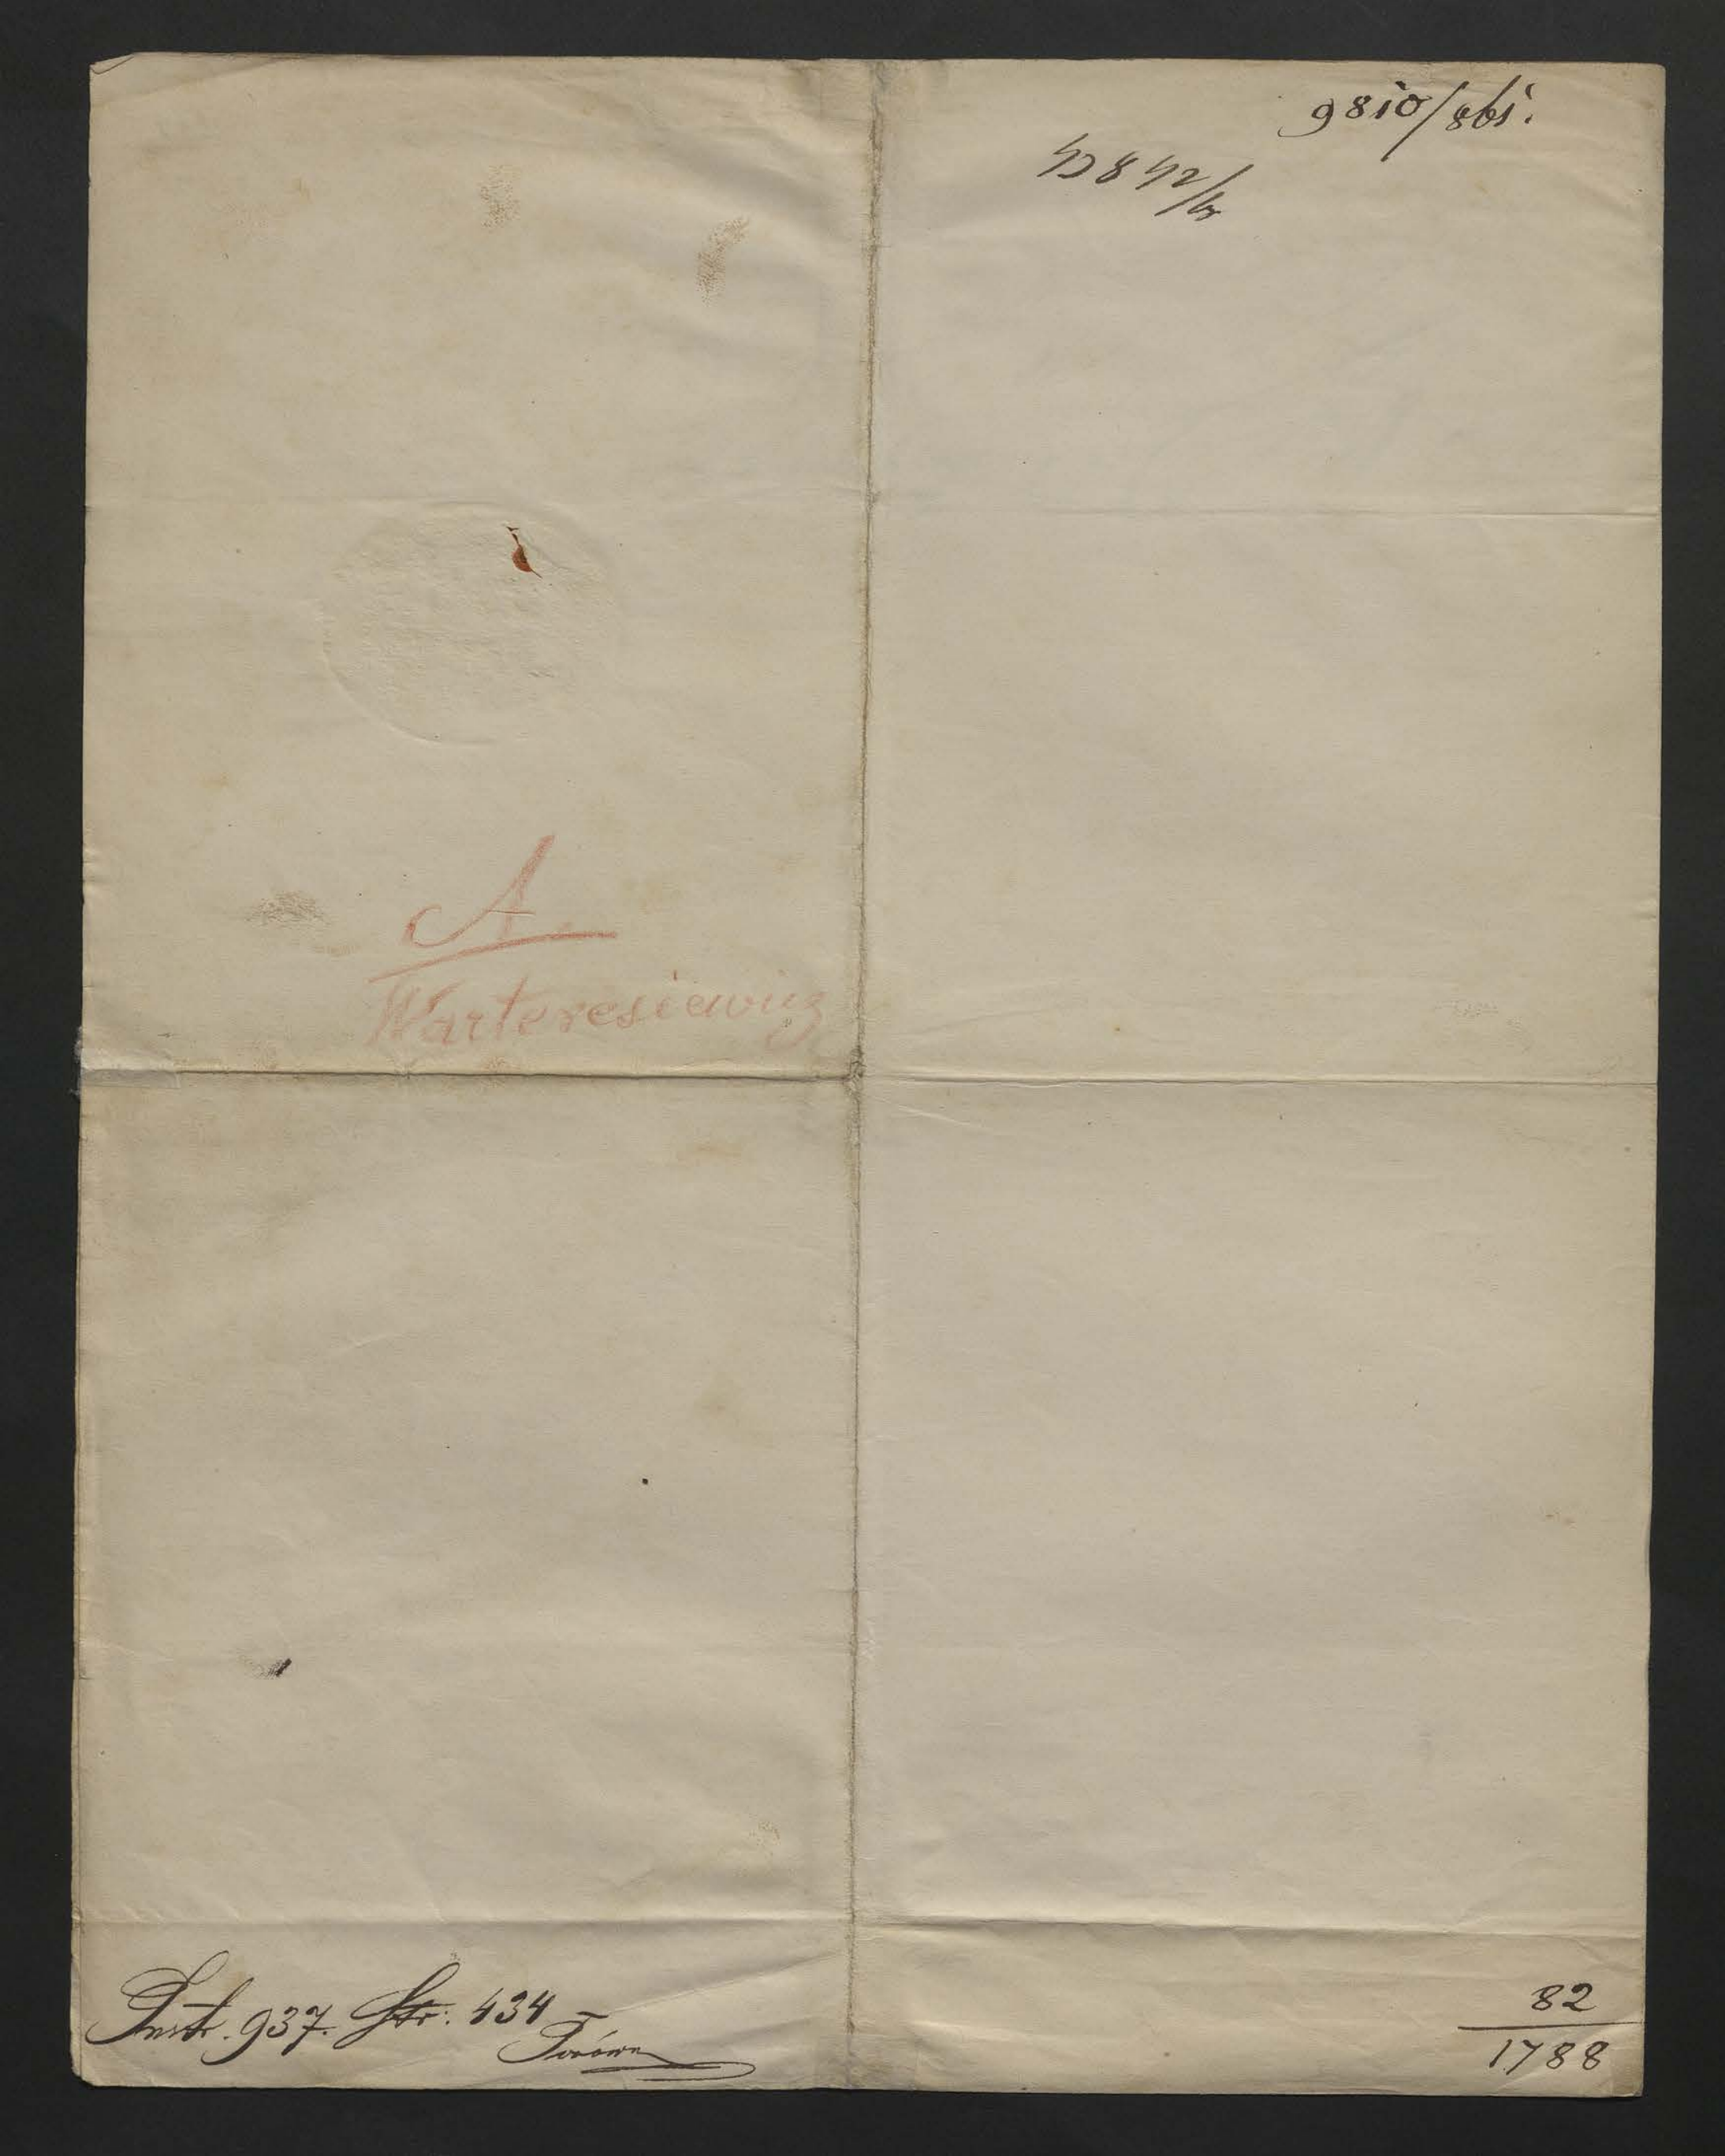 9810/861.
A.
Warteresiewicz
Instr. 937. Str: 434
82
1788